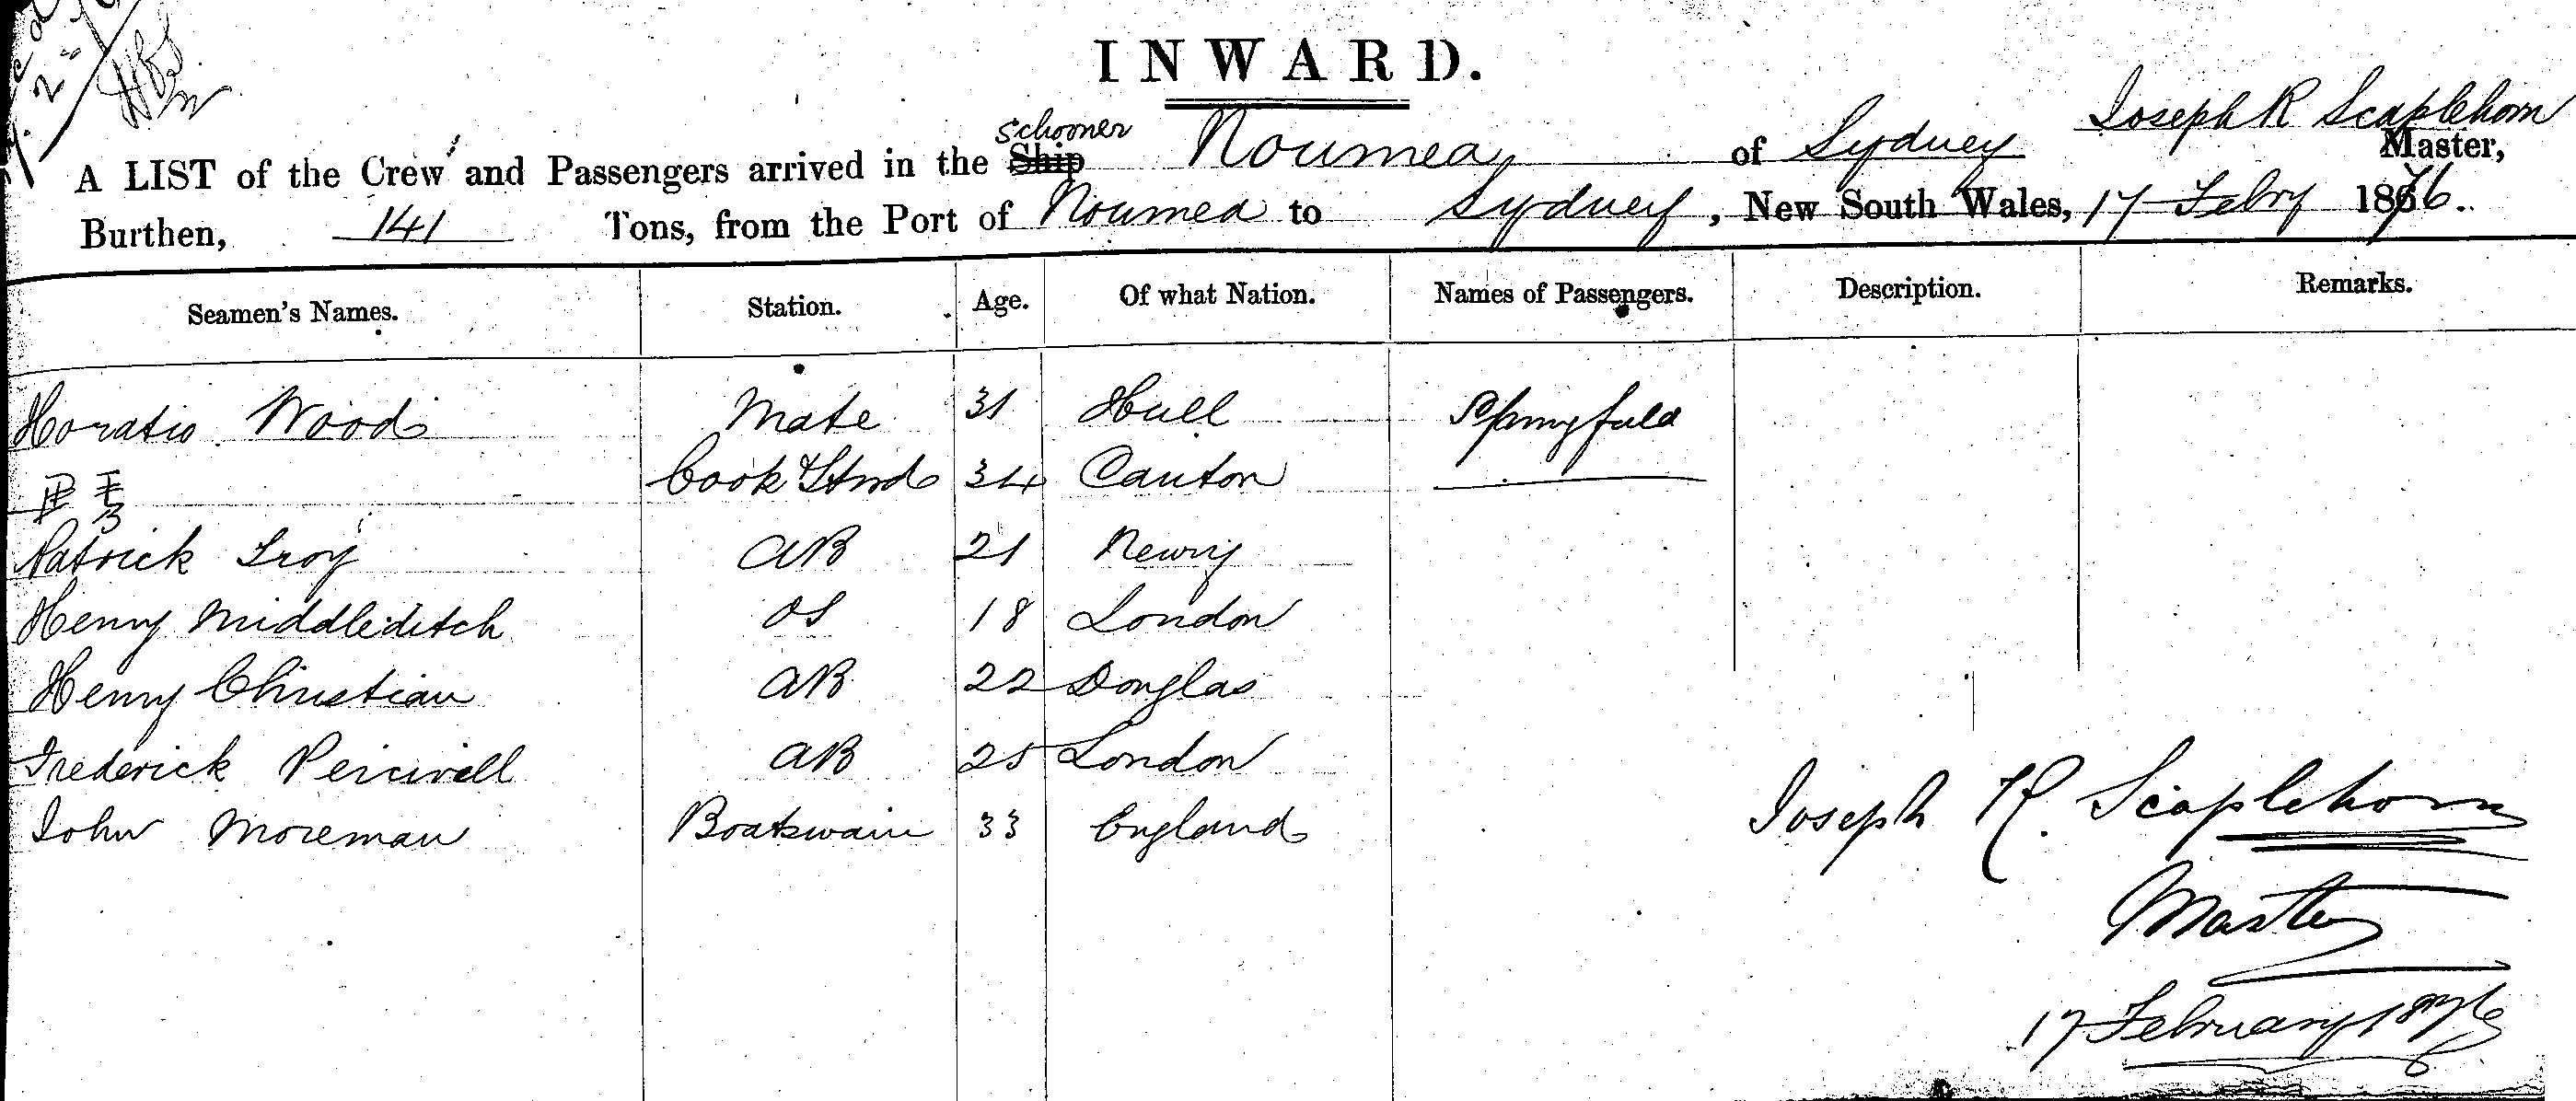 INWARD.
Joseph R Scaplehorn
schooner
A LIST of the Crew and Passengers arrived in the Ship Noumea of Sydney Master,
Burthen, 141 Tons, from the Port of Noumea to Sydney, New South Wales, 17 Febry 1876.
Seamen's Names. Station. Age. Of what Nation. Names of Passengers. Description. Remarks.
Horatio Wood Mate 31 Hull
Cook & Stwd 34 Canton
Patrick Troy AB 21 Newry
Henry Middleditch OS 18 London
Henry Christian AB 22 Douglas
Frederick Percivell AB 25 London
John Moreman Boatswain 33 England
Joseph R. Scaplehorn
Master
17 February 1876